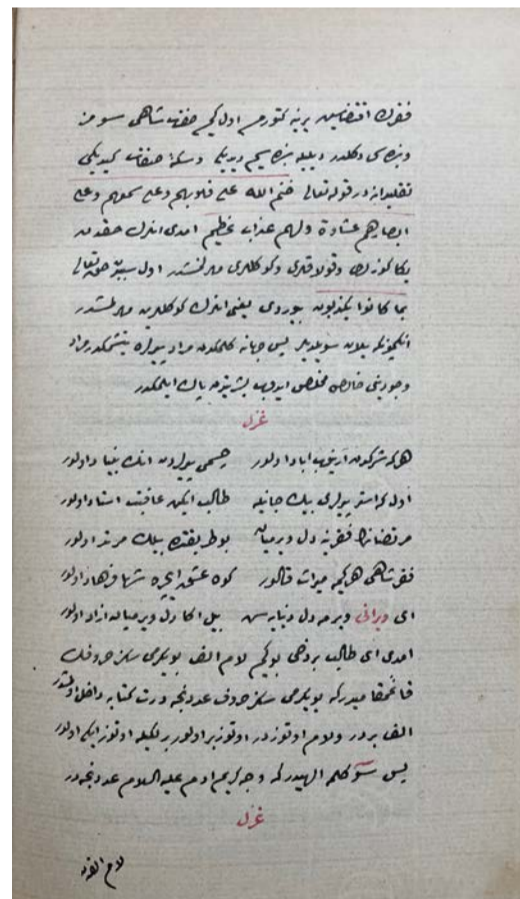 فقرك اقتضاسن يرينه كتورمز اول كيم حضرت شاهى سومز
وبزه سى دكلدر ديليله بزه سيم ديديكى و سكه صفات كيديكى
تقليدانه در قوله تعالى ختم الله على قلوبهم وعلى سمعهم وعلى
ابصارهم غشاوة ولهم عذاب عظيم امدى انلرك حقدن
يكا كوزلرى وقولاقلرى وكوكللرى مهرلنمشدر اول سببدن حق تعالى
بما كانوا يكذبون بيوردى يعنى انلرك كوكللرين مهرلمشدر
انكيچونكه يلان سويلديلر پس جهانه كلمكدن مراد ير يتشمكدر مراد
وجودينى خالص مخلص ايدوب بشريتدن پاك ايلمكدر
غزل
هركه شركدن آرينوب اباد اولور جسمى يولردن انك بنياد اولور
اول كه استر يولرى بيك جانيله طالب ايكن عاقبت استاد اولور
مرتضانك فقرينه دل ويرميان بو طريقتده بيلك مرتد اولور
فقر شاهى هر كيمه ميراث قالور كوه عشق ايچره شها فرهاد اولور
اى ويرانى ويرمه دل دنيايه سن بيل اكا دل ويرميان ازاد اولور
امدى اى طالب بر دخى بو كيم لام الف بو يكرمى سكز حروفك
قائممقاميدركه بو يكرمى سكز حروف عددنجه درت كتابه داخل اولمشدر
الف بردر ولام اوتوزدر اوتوز بر اولور بر نقطه ايله اوتوز ايكى اولور
پس سى و كلمه الهيدركه وجه كريم ادم عليه السلام عددنجه در
غزل
لام الفدن